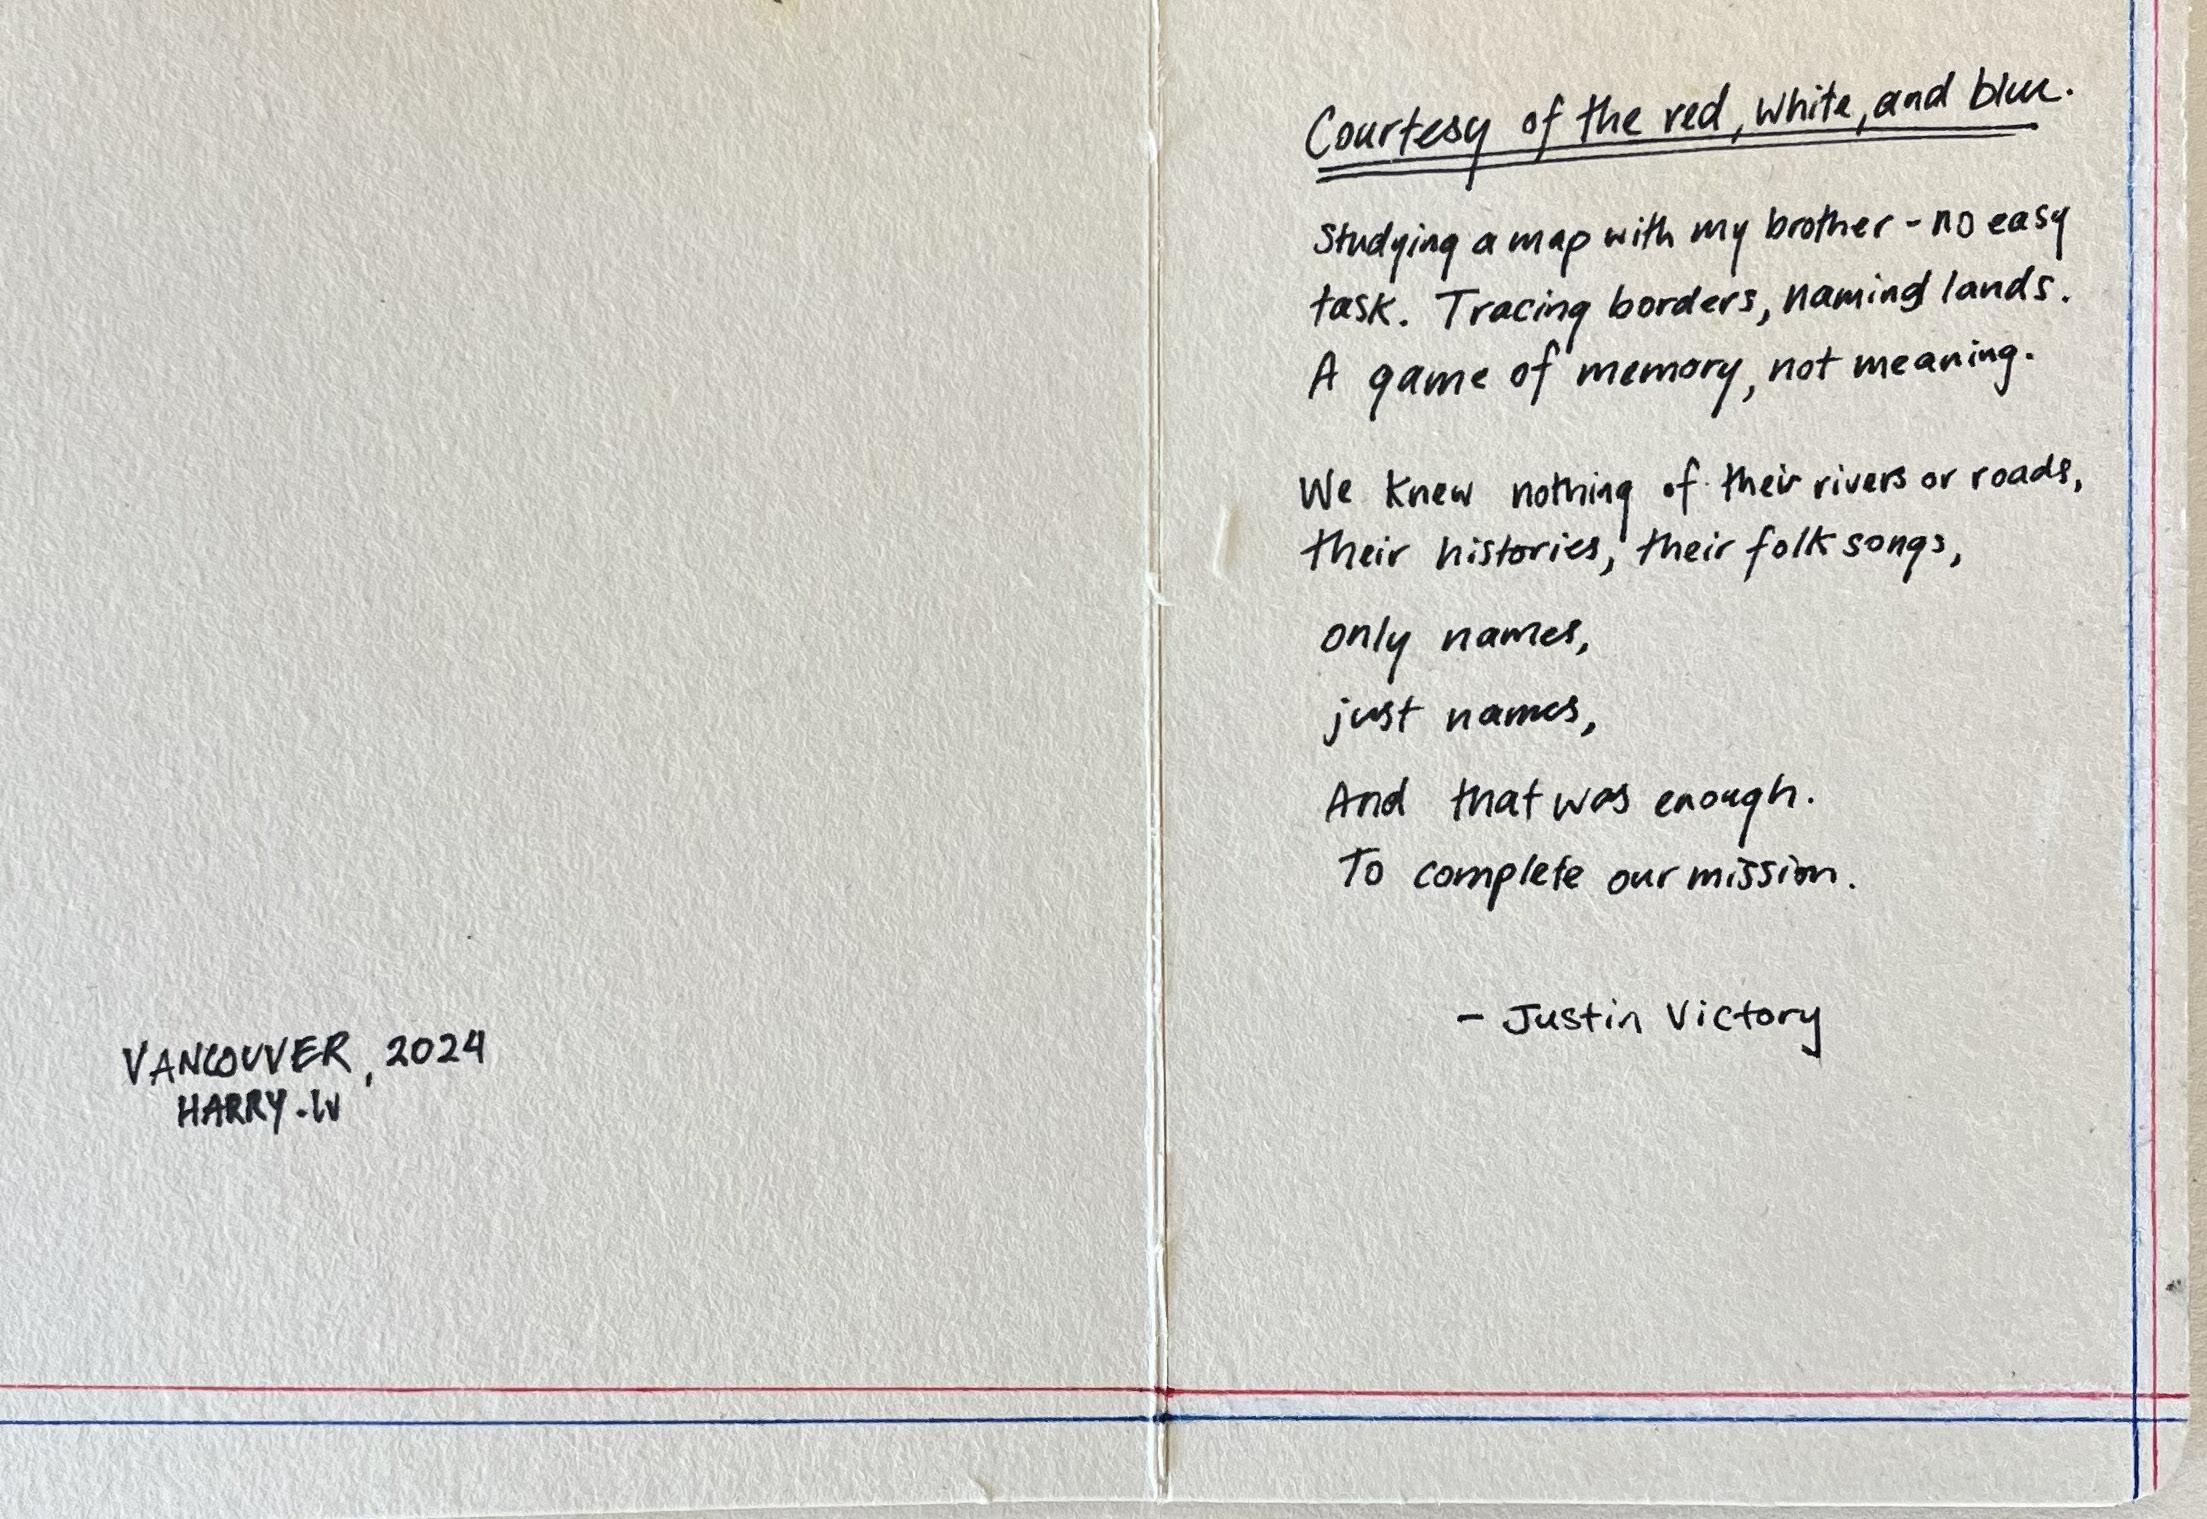 VANCOUVER, 2024
HARRY.lv
Courtesy of the red, white, and blue.
Studying a map with my brother - no easy
task. Tracing borders, naming lands.
A game of memory, not meaning.
We knew nothing of their rivers or roads,
their histories, their folk songs,
only names,
just names,
And that was enough.
To complete our mission.
- Justin Victory